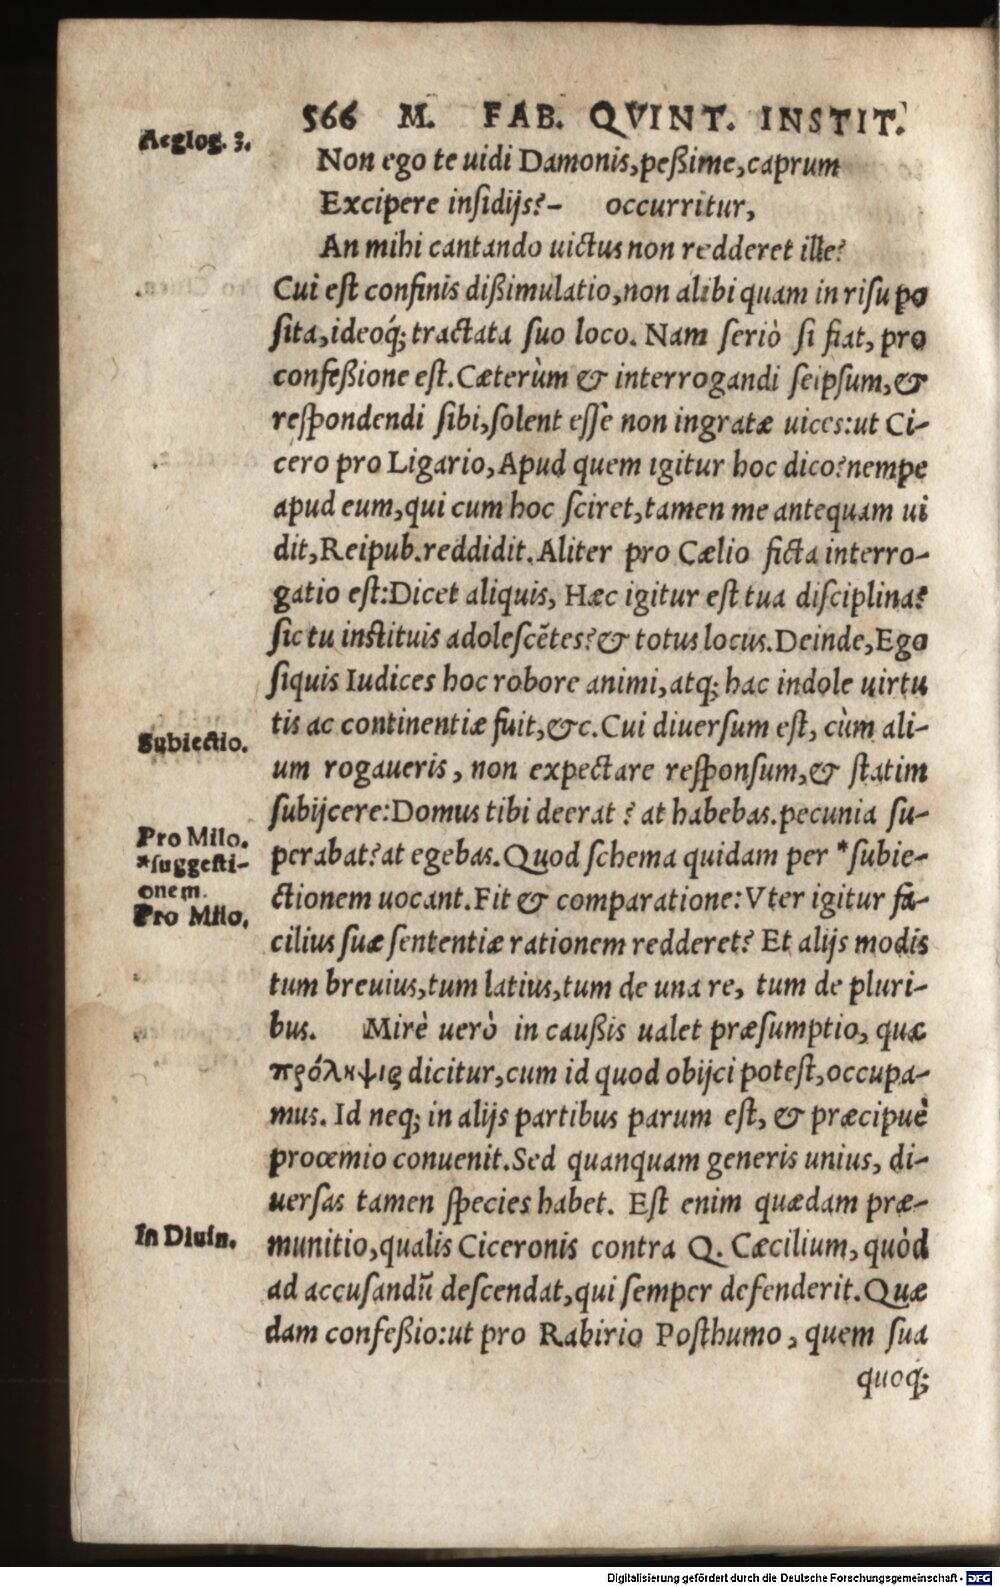 566 M. FAB. QVINT. INSTIT.
Aeglog. 3.
Non ego te uidi Damonis,peßime,caprum
Excipere inſidijs?- occurritur,
An mihi cantando uictus non redderet ille?
Cui eſt confinis dißimulatio,non alibi quam in riſu po
ſita,ideoq́; tractata ſuo loco. Nam ſeriò ſi fiat, pro
confeßione eſt.Cæterùm & interrogandi ſeipſum,&
reſpondendi ſibi,ſolent eſſe non ingratæ uices:ut Ci-
cero pro Ligario,Apud quem igitur hoc dico?nempe
apud eum,qui cum hoc ſciret,tamen me antequam ui
dit,Reipub.reddidit.Aliter pro Cælio ficta interro-
gatio eſt:Dicet aliquis, Hæc igitur eſt tua diſciplina?
ſic tu inſtituis adoleſcētes?& totus locus.Deinde,Ego
ſiquis Iudices hoc robore animi,atq; hac indole uirtu
tis ac continentiæ fuit,&c.Cui diuerſum eſt, cùm ali-
Subiectio.
um rogaueris, non expectare reſponſum,& ſtatim
ſubijcere:Domus tibi deerat? at habebas.pecunia ſu-
Pro Milo.
*ſuggeſti-
onem.
perabat?at egebas.Quod ſchema quidam per *ſubie-
ctionem uocant.Fit & comparatione:Vter igitur fa-
Pro Milo.
cilius ſuæ ſententiæ rationem redderet? Et alijs modis
tum breuius,tum latius,tum de una re, tum de pluri-
bus. Mirè uerò in caußis ualet præſumptio, quæ
πρόληψις dicitur,cum id quod obijci poteſt,occupa-
mus. Id neq; in alijs partibus parum eſt, & præcipuè
proœmio conuenit.Sed quanquam generis unius, di-
uerſas tamen ſpecies habet. Eſt enim quædam præ-
In Diuin.
munitio,qualis Ciceronis contra Q. Cæcilium, quòd
ad accuſandū deſcendat,qui ſemper defenderit.Quæ
dam confeßio:ut pro Rabirio Poſthumo, quem ſua
quoq;
Digitalisierung gefördert durch die Deutsche Forschungsgemeinschaft - DFG